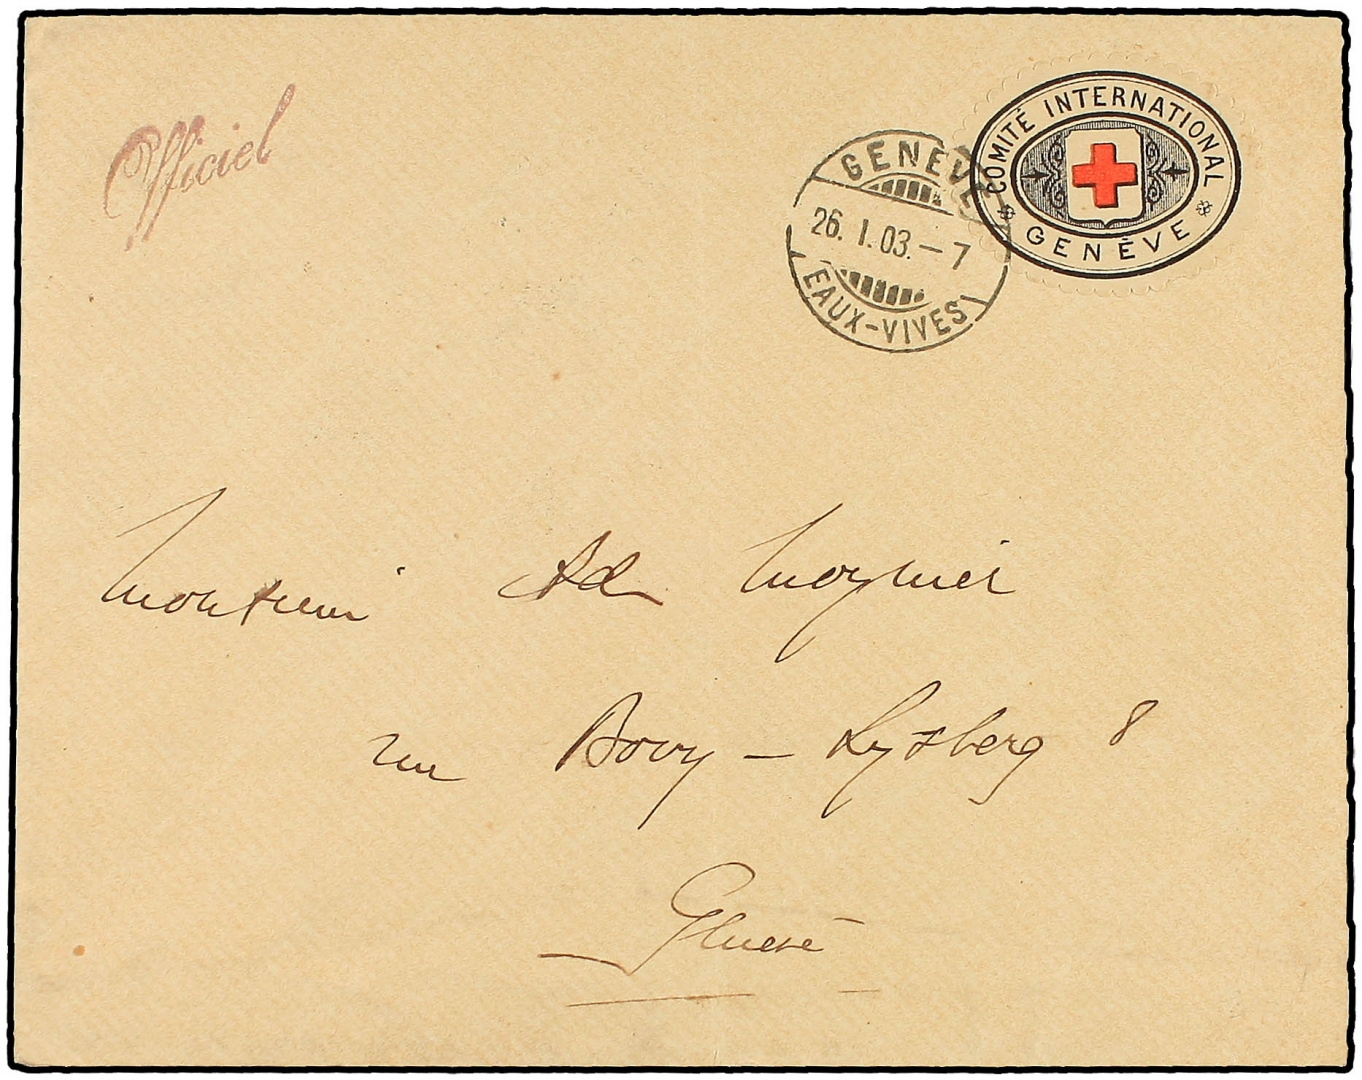 Officiel
COMITÉ INTERNATIONAL
GENÈVE
GENÈVE
26. I. 03. – 7
EAUX-VIVES
Monsieur Ad Moynier
rue Bovy – Lysberg 8
Genève